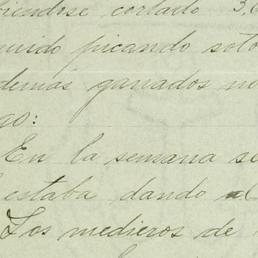 cortado 3,
picando soto
demás ganados no
go:
En la semana se
estaba dando
Los medieros de